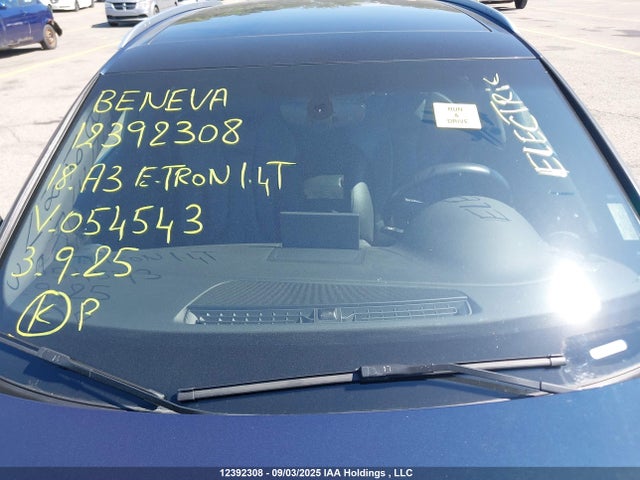 BENEVA
12392308
18. A3 E.TRON 1.4T
V.054543
3.9.25
K P
RUN
&
DRIVE
ELECTRIC
12392308 - 09/03/2025 IAA Holdings , LLC